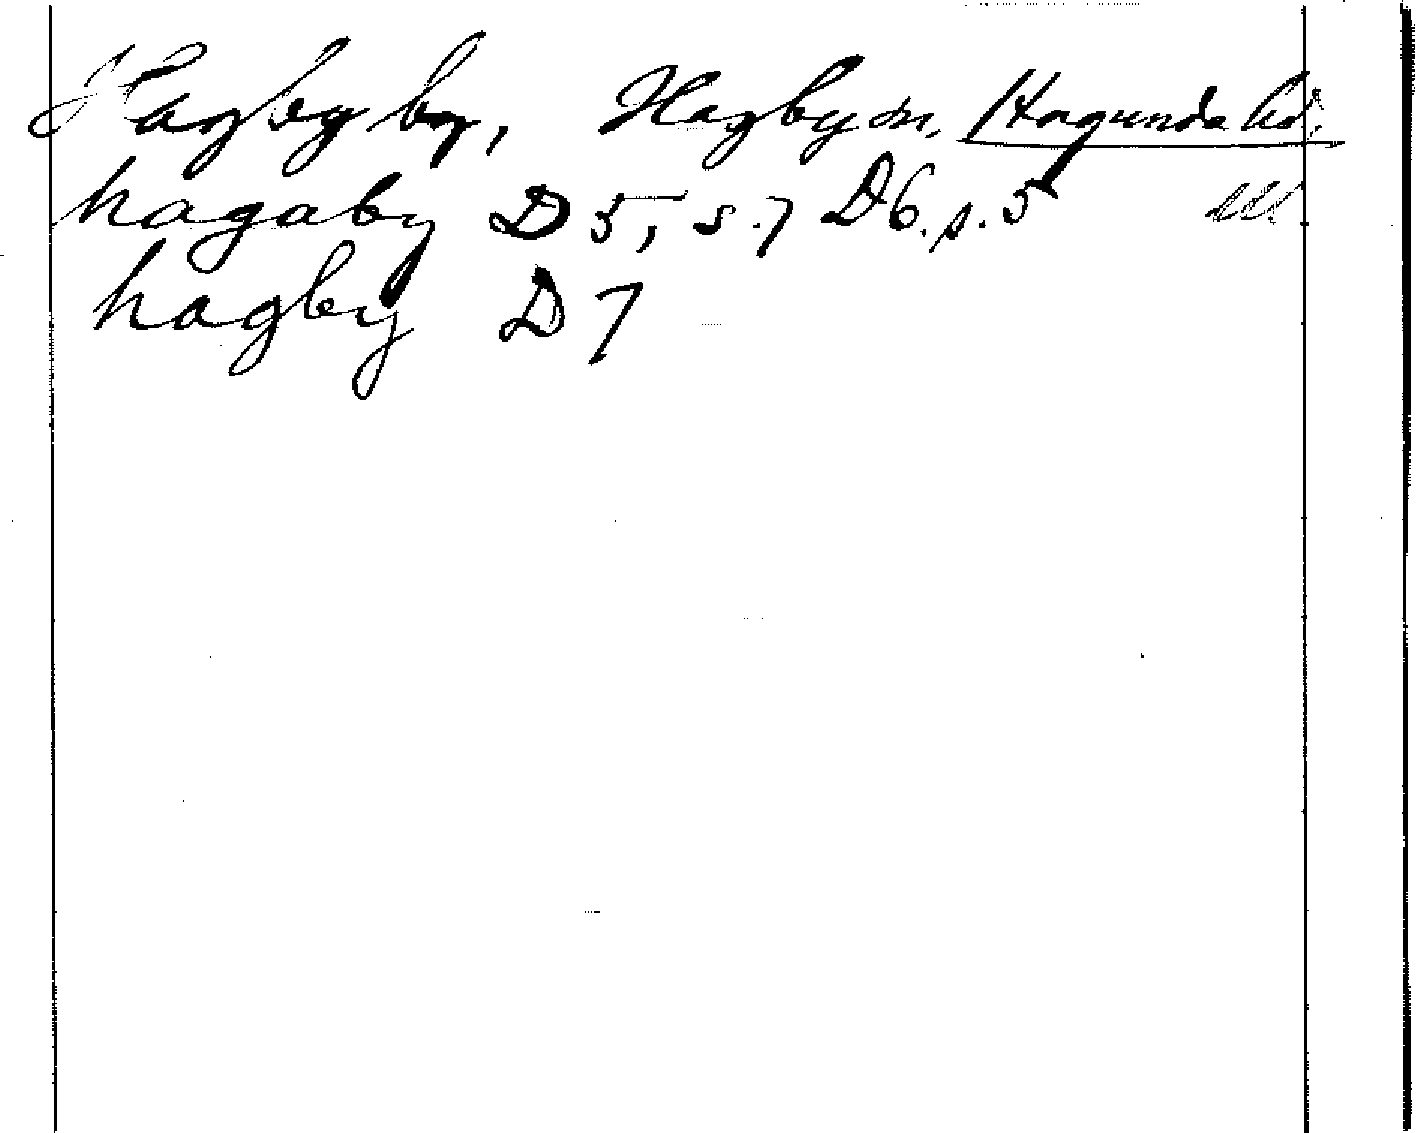 Hagby by, Hagby sn, Hagunda hd.
hagaby D 5, s. 7 D6. s. 5
hagby D 7